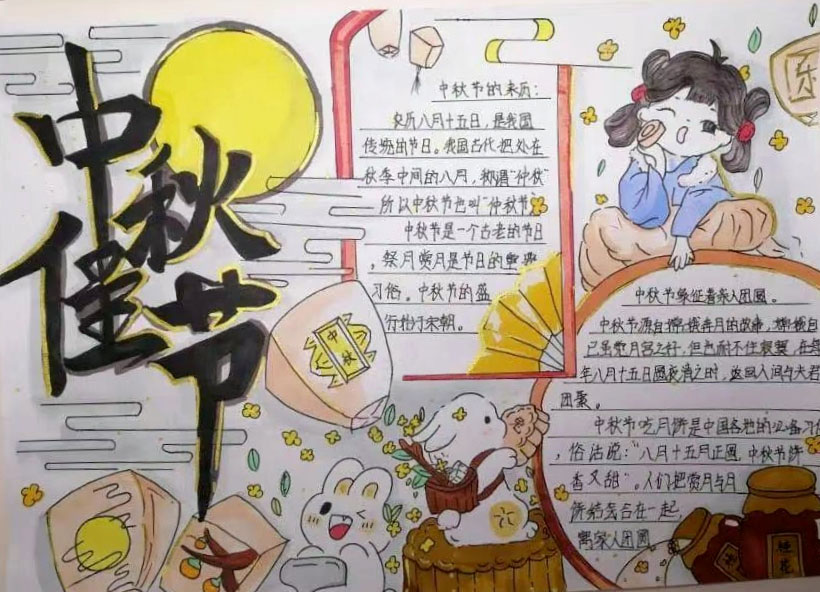 中秋佳节
中秋节的来历：
农历八月十五日，是我国
传统的节日。我国古代把处在
秋季中间的八月，称谓"仲秋"
所以中秋节也叫"仲秋节
中秋节是一个古老的节日
，祭月赏月是节日的重要
习俗。中秋节的盛
行始于宋朝。
中秋
乐
中秋节象征着家人团圆。
中秋节源自嫦娥奔月的故事，嫦娥自
已虽觉月宫之好，但也耐不住寂寞，在每
年八月十五日圆夜清之时，返回人间与夫君
团聚。
中秋节吃月饼是中国各地的必备习
，俗话说："八月十五月正圆，中秋节饼
香又甜"。人们把赏月与月
饼结合在一起，
寓家人团圆
桂花